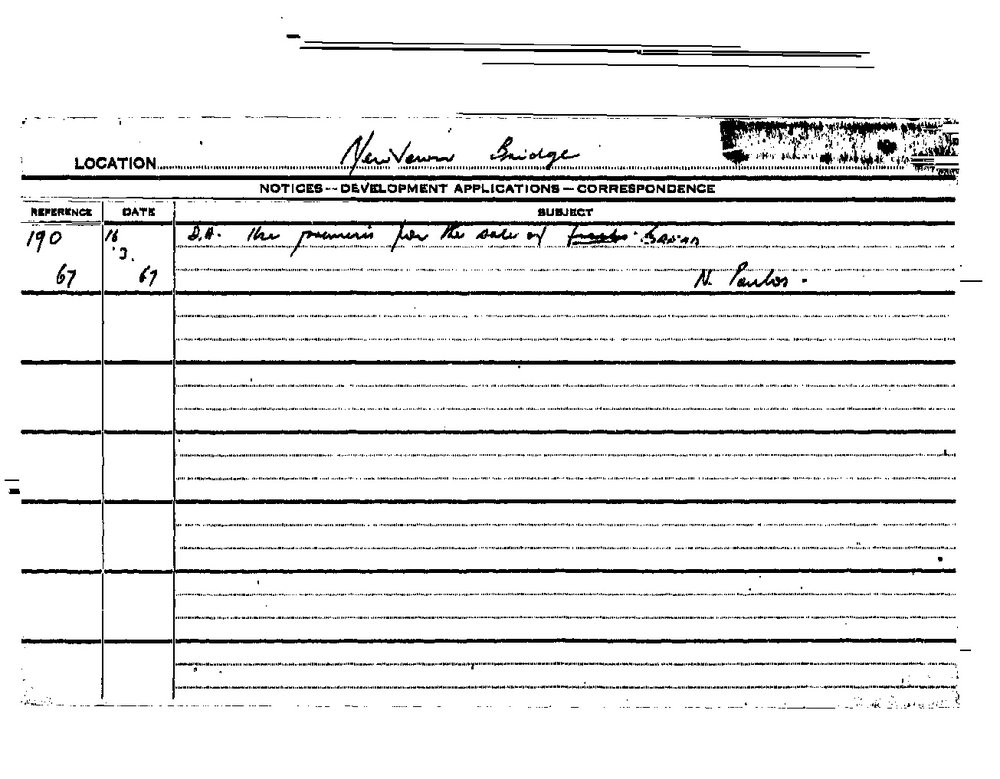 LOCATION Newtown Bridge
NOTICES--DEVELOPMENT APPLICATIONS—CORRESPONDENCE
REFERENCE DATE SUBJECT
190 16 D.A. Use premises for the sale of
'3.
67 67 N. Paulos.